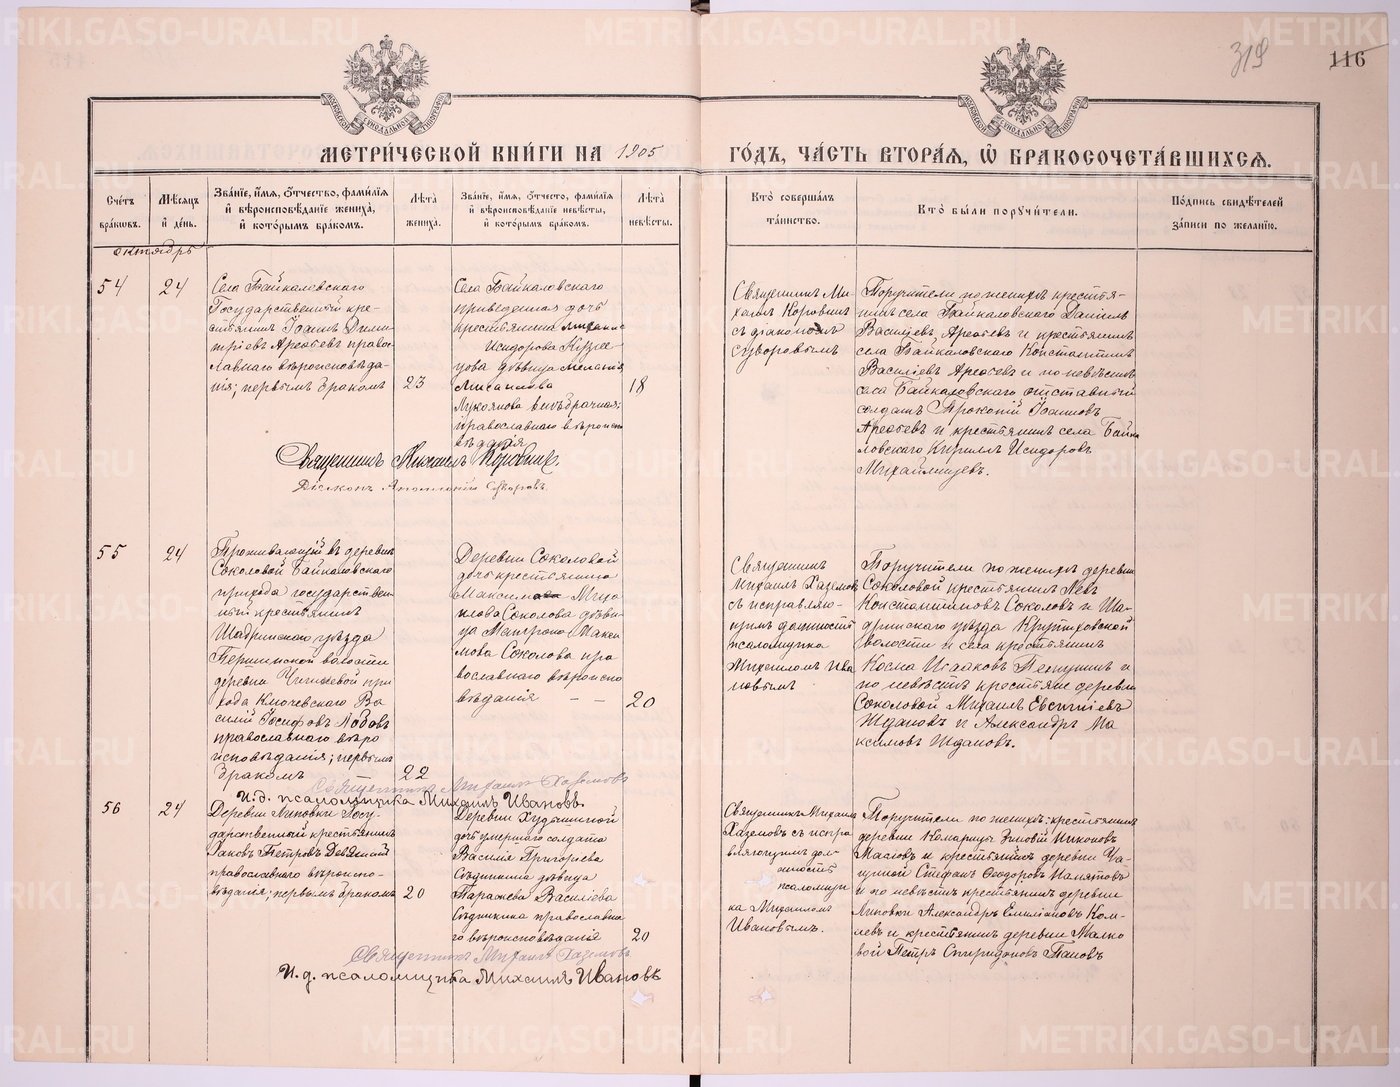 319
116
МЕТРИ́ЧЕСКОЙ КНИ́ГИ НА 1905
ГО́ДЪ, ЧА́СТЬ ВТОРА́Я, Ѡ БРАКОСОЧЕТА́ВШИХСЯ.
Сче́тъ бра́ковъ.
Мѣ́сяцъ и де́нь.
Зва́ніе, и́мя, о́тчество, фами́лія
и вѣроисповѣ́даніе жениха́,
и кото́рымъ бра́комъ.
Лѣта̀ жениха̀.
Зва́ніе, и́мя, о́тчество, фами́лія
и вѣроисповѣ́даніе невѣ́сты,
и кото́рымъ бра́комъ.
Лѣта̀ невѣ́сты.
Кто̀ соверша́лъ
та́инство.
Кто̀ бы́ли поручи́тели.
По́дпись свидѣ́телей
за́писи по жела́нію.
октябрь
54
24
Села Байкаловскаго
Государственный кре-
стьянинъ Іоаннъ Дими-
тріевъ Арефьевъ право-
славнаго вѣроисповѣда-
нія; первымъ бракомъ
23
Села Байкаловскаго
приведенная дочь
крестьянина Михаила
Исидорова Кузне-
цова дѣвица Меланія
Михаилова
внѣбрачная;
православнаго вѣроиспо
вѣданія
18
Священникъ Ми-
хаилъ Коровинъ
съ діакономъ
Суворовымъ
Поручители по женихѣ крестья-
не села Байкаловскаго Даніилъ
Василіевъ Арефьевъ и крестьянинъ
села Байкаловскаго Константинъ
Василіевъ Арефьевъ и по невѣстѣ
села Байкаловскаго отставный
солдатъ Прокопій Іоанновъ
Арефьевъ и крестьянинъ села Байка
ловскаго Кириллъ Исидоровъ
Священникъ Михаилъ Коровинъ.
Діаконъ Суворовъ.
55
24
Проживающій въ деревнѣ
Соколовой Байкаловскаго
прихода государствен
ный крестьянинъ
Шадринскаго уѣзда
Першинской волости
деревни при
хода Ключевскаго Ва
силій Іосифовъ Лобовъ
православнаго вѣро
исповѣданія; первымъ
бракомъ
22
Деревни Соколовой
дочь крестьянина
Максима Миха
илова Соколова дѣви
ца Матрона Макси
мова Соколова пра
вославнаго вѣроиспо
вѣданія — —
20
Священникъ
Михаилъ Хаземовъ
съ исправляю-
щимъ должность
псаломщика
Михаиломъ Ива
новымъ
Поручители по женихѣ деревни
Соколовой крестьянинъ Левъ
Константиновъ Соколовъ и Ша-
дринскаго уѣзда
волости и села крестьянинъ
Косма Исааковъ и
по невѣстѣ крестьяне деревни
Соколовой Михаилъ Евсигніевъ
Ждановъ и Александръ Ма
ксимовъ Ждановъ.
Священникъ Михаилъ Хаземовъ
И. д. псаломщика Михаилъ Ивановъ.
56
24
Деревни Липовки Госу-
дарственный крестьянинъ
Іаковъ Петровъ Девятый
православнаго вѣроиспо-
вѣданія; первымъ бракомъ
20
Деревни
дочь умершаго солдата
Василія Григоріева
дѣвица
Параскева Василіева
православна
го вѣроисповѣданія
20
Священникъ Михаилъ
Хаземовъ съ испра
вляющимъ дол-
жность
псаломщи
ка Михаиломъ
Ивановымъ.
Поручители по женихѣ: крестьянинъ
деревни Комарицы Зиновій Никоновъ
Масловъ и крестьянинъ деревни
Стефанъ Ѳеодоровъ
и по невѣстѣ крестьянинъ деревни
Липовки Александръ Емиліановъ
и крестьянинъ деревни
Петръ Спиридоновъ Поповъ
Священникъ Михаилъ Хаземовъ
И. д. псаломщика Михаилъ Ивановъ
METRIKI.GASO-URAL.RU